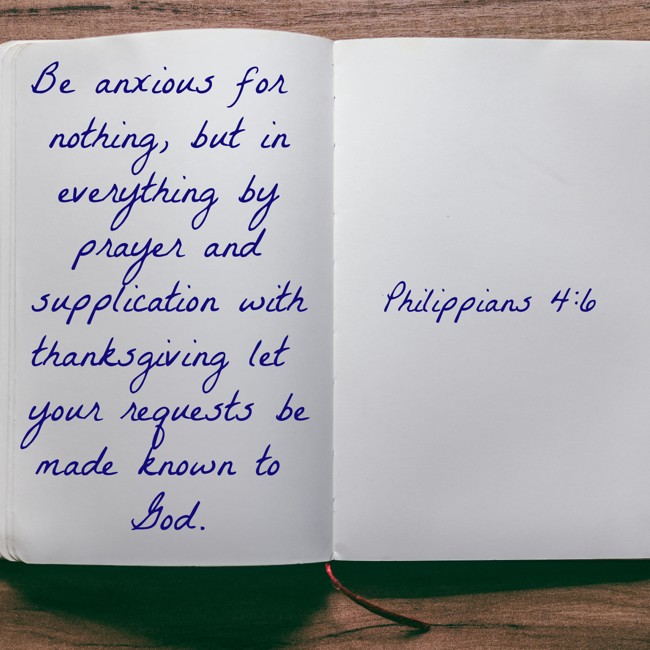 Be anxious for
nothing, but in
everything by
prayer and
supplication with
thanksgiving let
your requests be
made known to
God.
Philippians 4:6